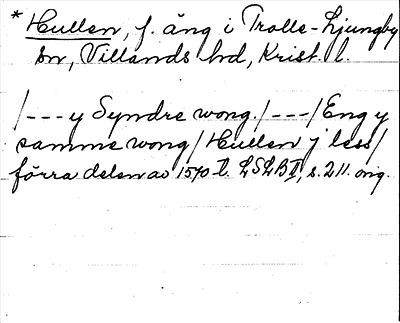 * Hullen, f. äng i Trolle-Ljungby
sn, Villands hd, Krist. l.
/---y Syndre wong./---/Eng y
samme wong/Hullen j less/
förra delen av 1570-t. LSLB II, s. 211. orig.